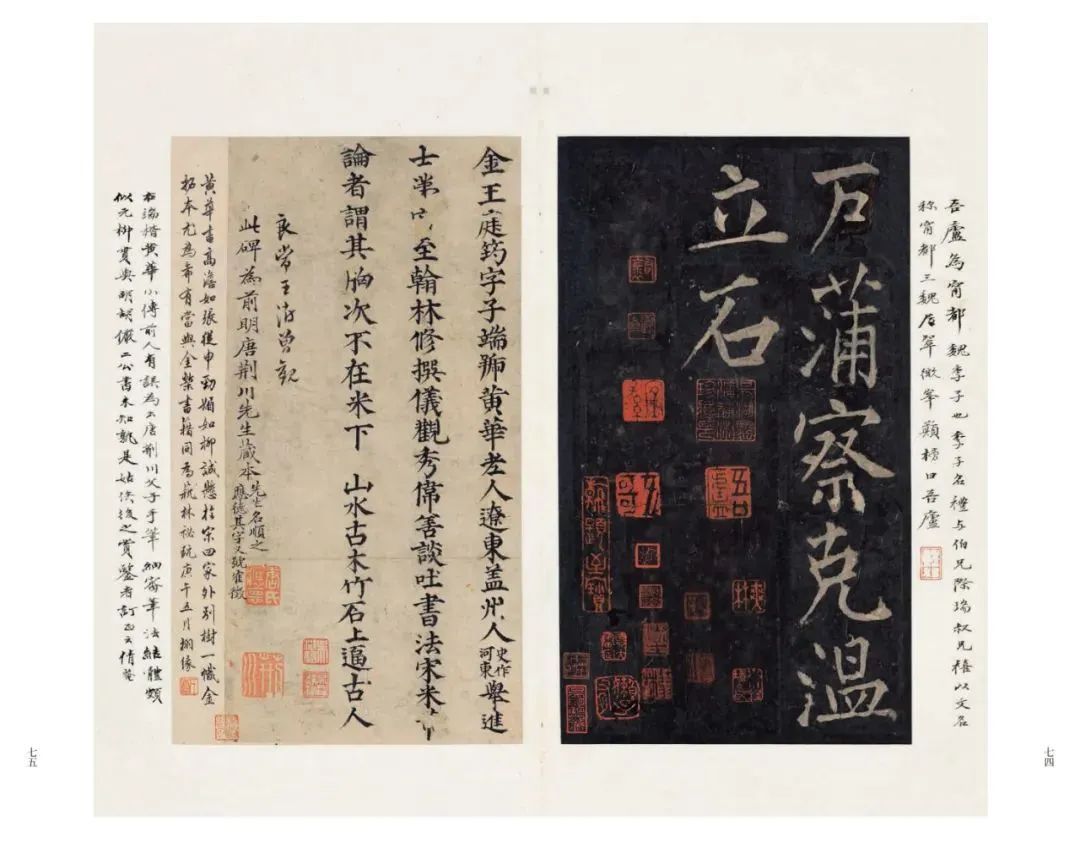 吾廬為甯都魏季子也季子名禮与伯兄際瑞叔兄禧以文名
称甯都三魏居翠微峯顛榜曰吾廬
戶蒲察克温
立石
金王庭筠字子端號黃華老人遼東盖州人史作河東舉進
士第至翰林修撰儀觀秀偉善談吐書法宋米
論者謂其胸次不在米下山水古木竹石上逼古人
良常王澍曾觀
此碑為前明唐荊川先生藏本先生名順之應德其字又號
黃華書高澹如張從申勁媚如柳誠懸於宋四家外别樹一幟金
拓本尤為希有當與金槧書籍同為藝林祕玩庚午五月
右端楷黃華小傳前人有誤為出唐荊川父子手筆細審筆法結體頗
似元柳貫與明胡儼二公書未知孰是姑俟後之賞鑒者訂正云倩菴
七四
七五